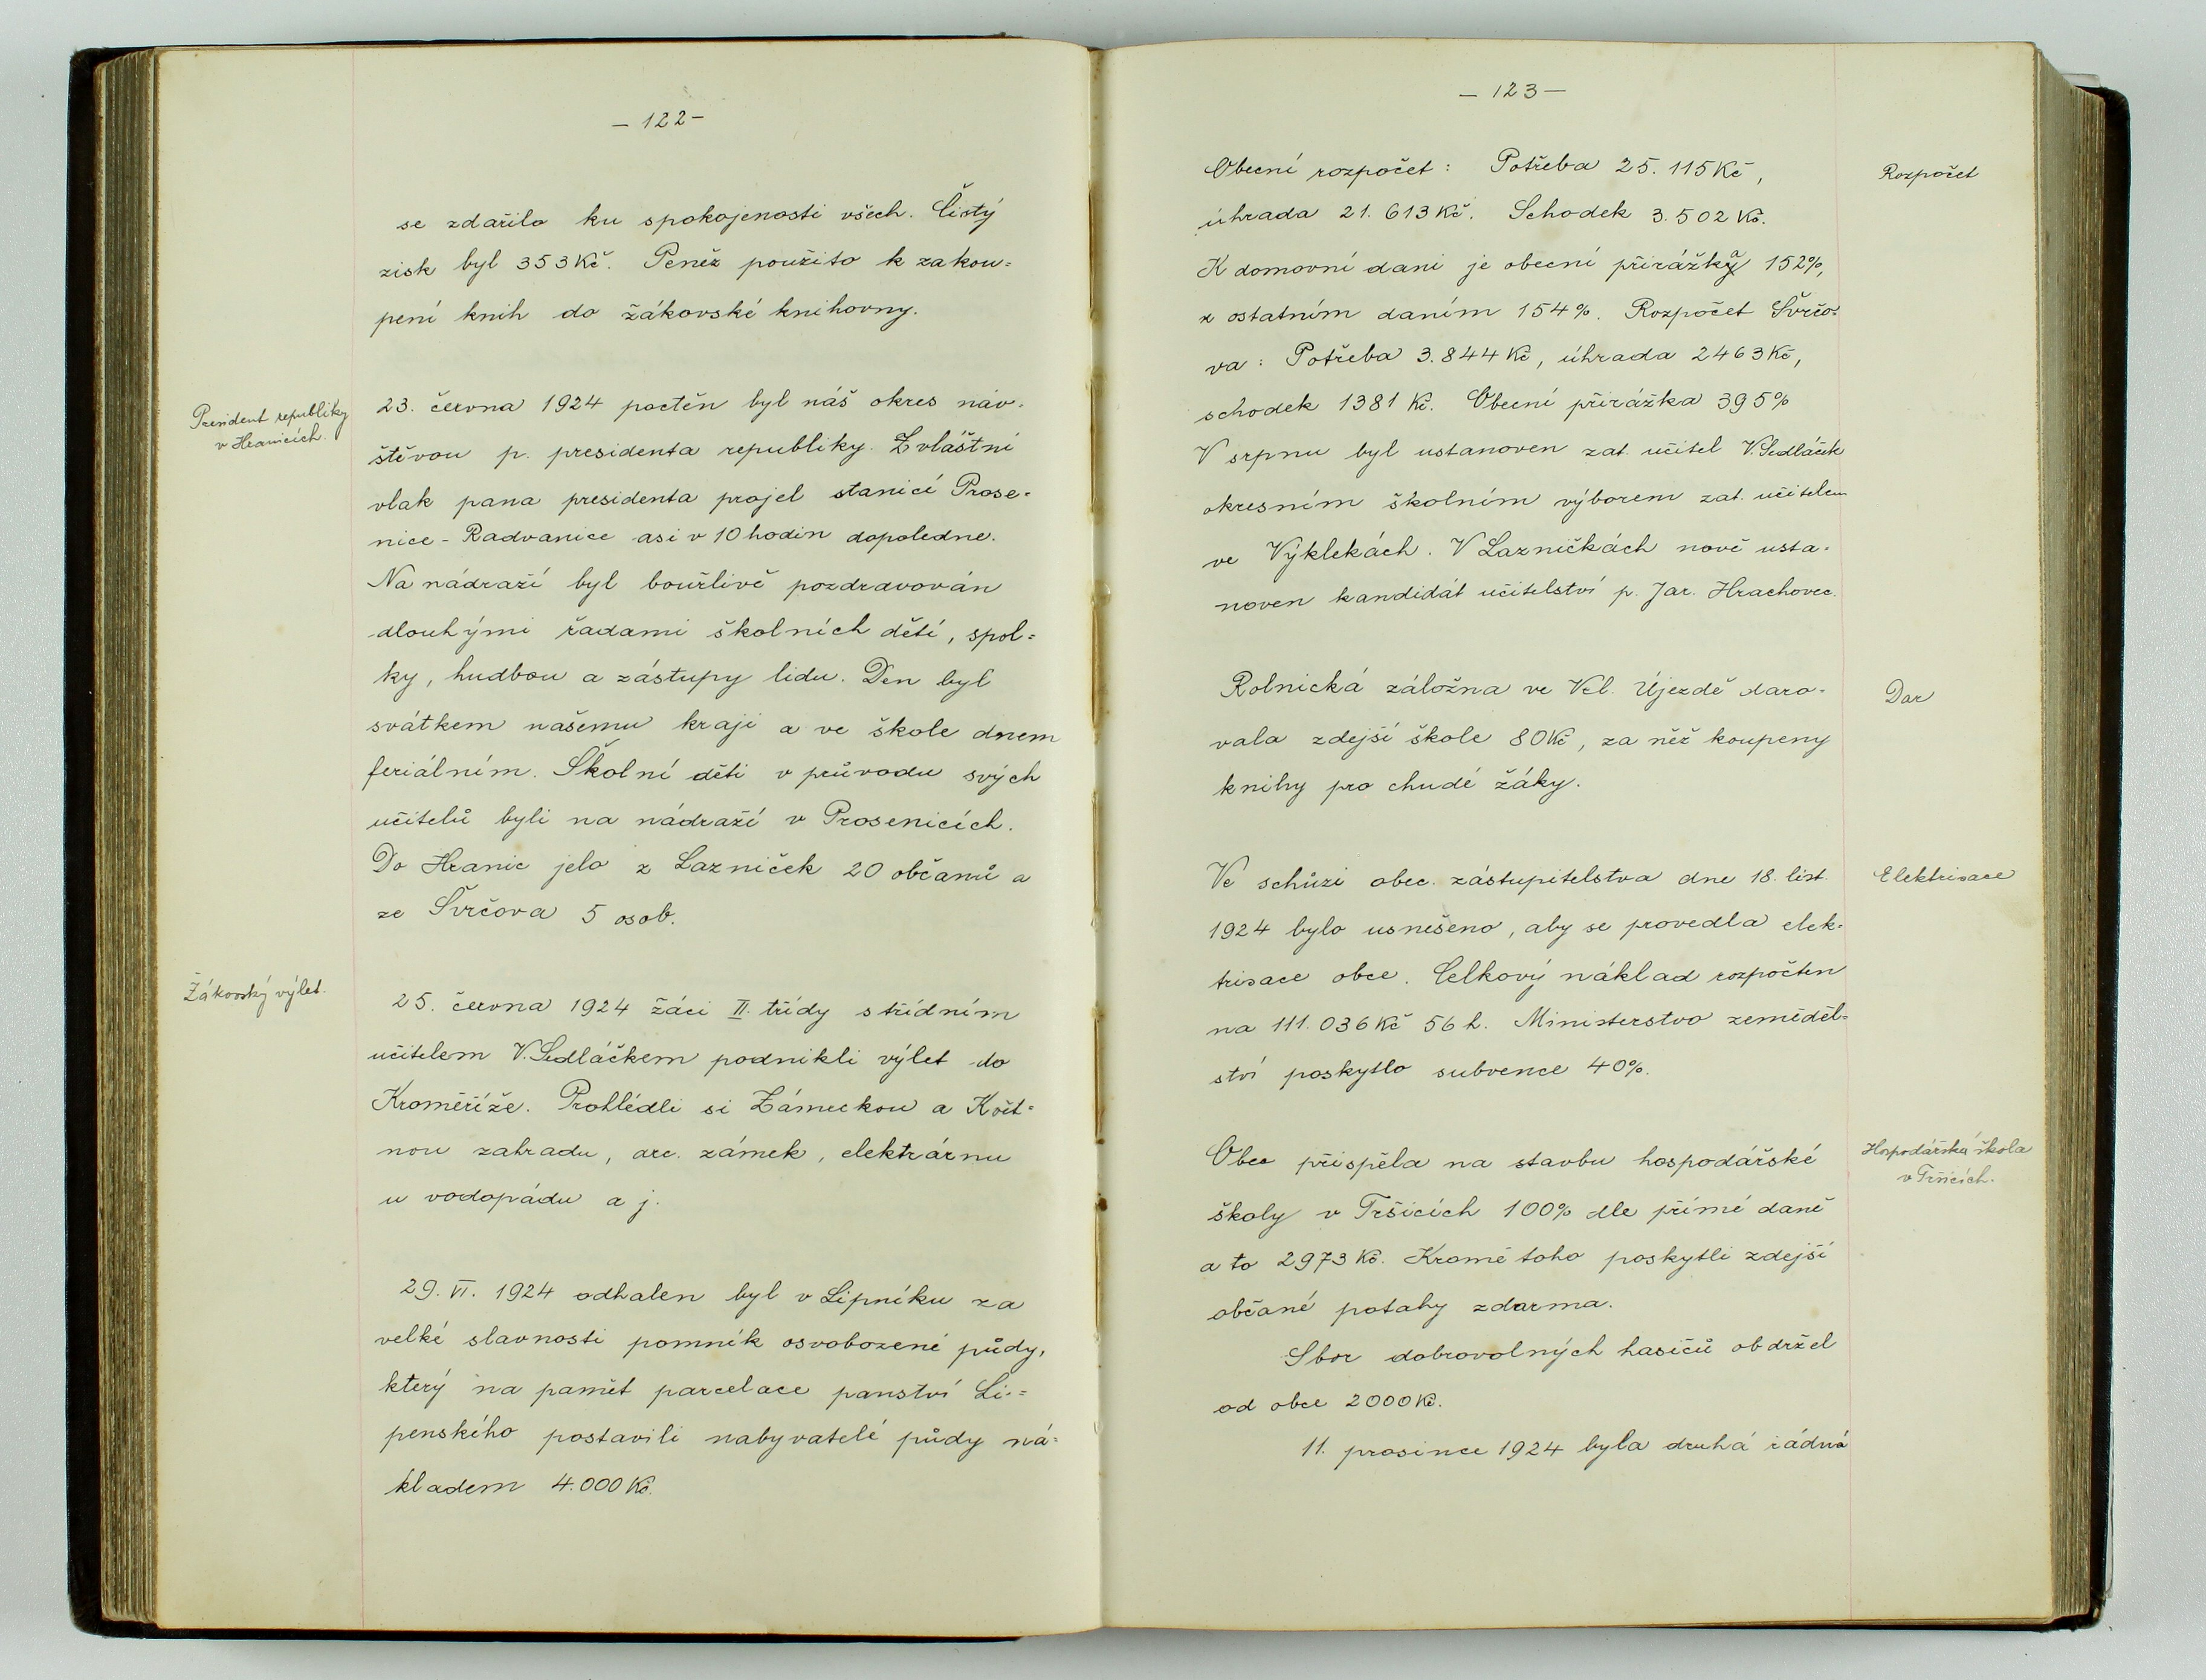 - 122 -
se zdařilo ku spokojenosti všech. Čistý
zisk byl 353 Kč. Peněz použito k zakou=
pení knih do žákovské knihovny.
President republiky
v Hranicích.
23. června 1924 poctěn byl náš okres náv-
štěvou p. presidenta republiky. Zvláštní
vlak pana presidenta projel stanicí Prose-
nice - Radvanice asi v 10 hodin dopoledne.
Na nádraží byl bouřlivě pozdravován
dlouhými řadami školních dětí, spol=
ky, hudbou a zástupy lidu. Den byl
svátkem našemu kraji a ve škole dnem
feriálním. Školní děti v průvodu svých
učitelů byli na nádraží v Prosenicích.
Do Hranic jelo z Lazniček 20 občanů a
ze Švrčova 5 osob.
Žákovský výlet.
25. června 1924 žáci II. třídy s třídním
učitelem V. Sedláčkem podnikli výlet do
Kroměříže. Prohlédli si Zámeckou a Květ=
nou zahradu, arc. zámek, elektrárnu
u vodopádu a j.
29. VI. 1924 odhalen byl v Lipníku za
velké slavnosti pomník osvobozené půdy,
který na pamět parcelace panství Li-=
penského postavili nabyvatelé půdy ná-
kladem 4.000 Kč.
- 123 -
Obecní rozpočet: Potřeba 25.115 Kč,
Rozpočet
úhrada 21.613 Kč. Schodek 3.502 Kč.
K domovní dani je obecní přirážka 152%,
k ostatním daním 154%. Rozpočet Švrčo-
va: Potřeba 3.844 Kč, úhrada 2463 Kč,
schodek 1381 Kč. Obecní přirážka 395%
V srpnu byl ustanoven zat. učitel V. Sedláček
okresním školním výborem zat. učitelem
ve Výklekách. V Lazničkách nově usta-
noven kandidát učitelství p. Jar. Hrachovec.
Rolnická záložna ve Vel. Újezdě daro-
Dar
vala zdejší škole 80 Kč, za něž koupeny
knihy pro chudé žáky.
Ve schůzi obec. zástupitelstva dne 18. list.
Elektrisace
1924 bylo usnešeno, aby se provedla elek-
trisace obce. Celkový náklad rozpočten
na 111.036 Kč 56 h. Ministerstvo zeměděl=
ství poskytlo subvence 40%.
Obec přispěla na stavbu hospodářské
Hospodářská škola
v Tršicích.
školy v Tršicích 100% dle přímé daně
a to 2973 Kč. Kromě toho poskytli zdejší
občané potahy zdarma.
Sbor dobrovolných hasičů obdržel
od obce 2000 Kč.
11. prosince 1924 byla druhá řádná